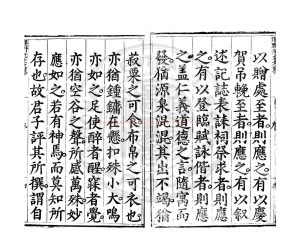 以贈處至者則應之有以慶
賀吊輓至者則應之有以叙
述記誌表誄祠祭求者則應
之有以登臨賦詠偕者則應
之盖仁義道德之言隨寓而
發猶源泉混混其出不竭猶
菽粟之可食布帛之可衣也
亦猶鍾鏞懸扣殊小大鳴
亦如之足使醉者醒寐者覺
亦猶空谷之聲所感萬殊妙
應如之若有神焉而莫知所
存也故君子評其所撰謂自